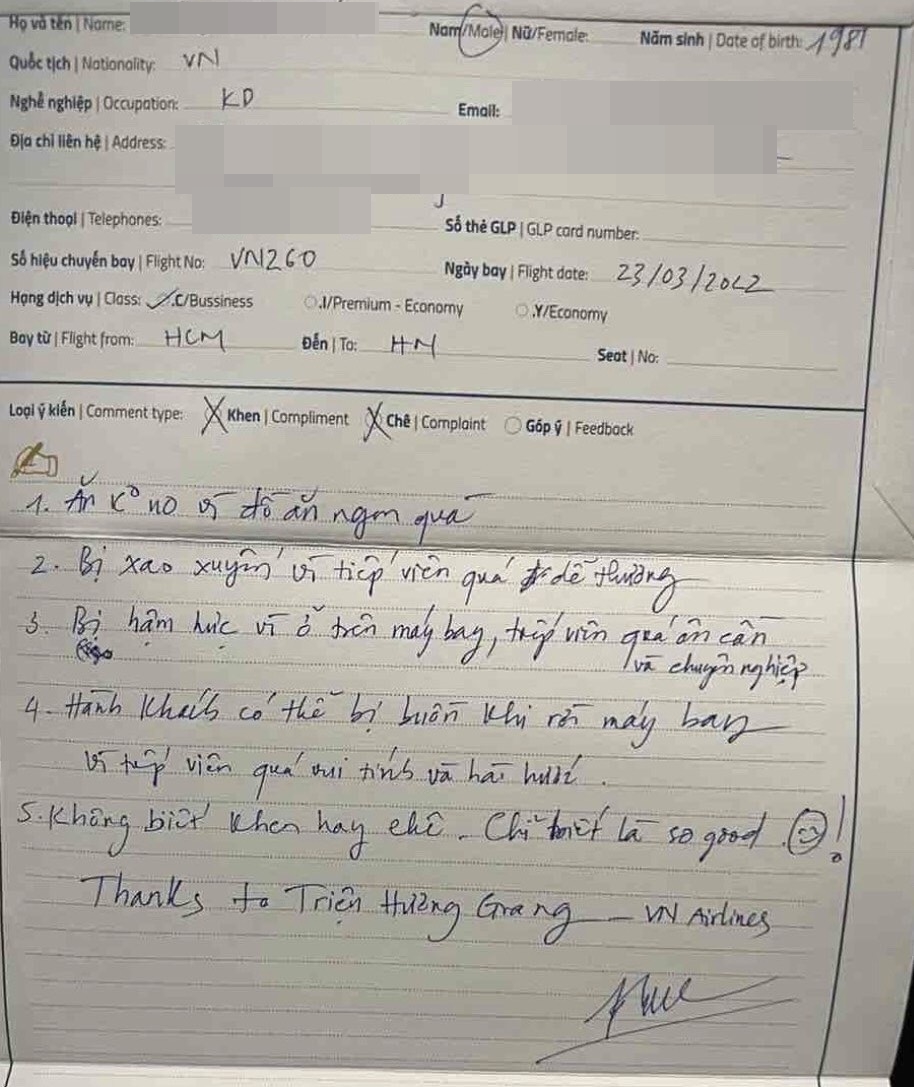 Họ và tên | Name:
Nam/Male | Nữ/Female: Năm sinh | Date of birth: 1981
Quốc tịch | Nationality: VN
Nghề nghiệp | Occupation: KD Email:
Địa chỉ liên hệ | Address:
Điện thoại | Telephones: Số thẻ GLP | GLP card number:
Số hiệu chuyến bay | Flight No: VN260 Ngày bay | Flight date: 23/03/2022
Hạng dịch vụ | Class: C/Bussiness J/Premium - Economy Y/Economy
Bay từ | Flight from: HCM Đến | To: HN Seat | No:
Loại ý kiến | Comment type: Khen | Compliment Chê | Complaint Góp ý | Feedback
1. Ăn K° no vì đồ ăn ngon quá
2. Bị xao xuyến vì tiếp viên quá dễ thương
3. Bị hậm hực vì ở trên máy bay, tiếp viên quá ân cần
và chuyên nghiệp
4. Hành khách có thể bị buồn khi rời máy bay
vì tiếp viên quá vui tính và hài hước.
5. Không biết khen hay chê. Chỉ biết là so good ☺!
Thanks to Triện Hương Giang – VN Airlines